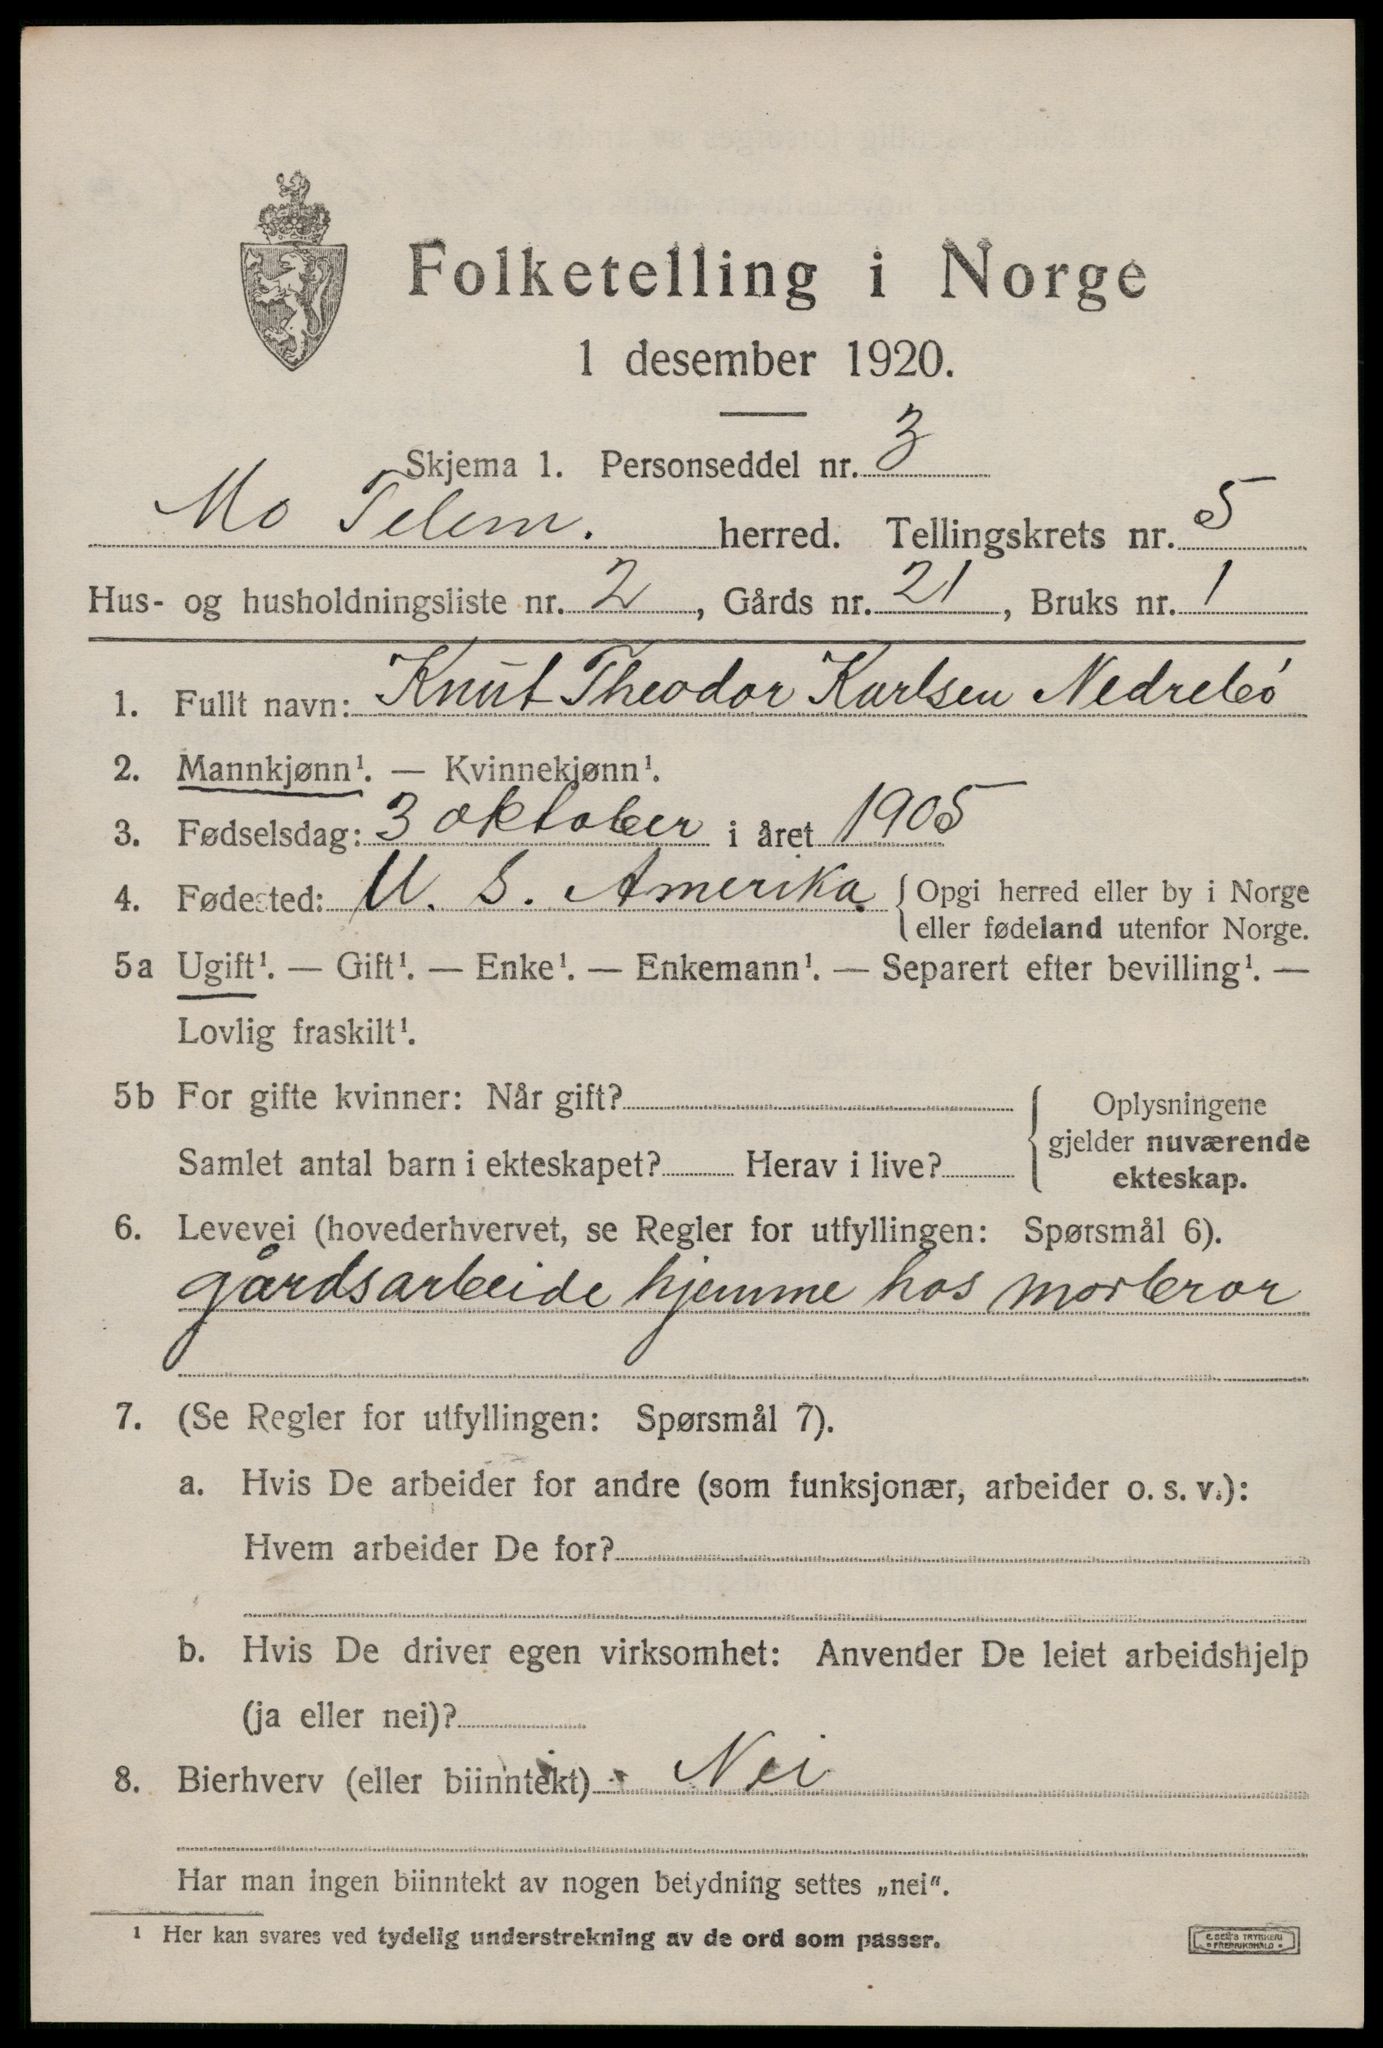 Folketelling i Norge
1 desember 1920.
Skjema 1. Personseddel nr. 3
Mo Telem. herred. Tellingskrets nr. 5
Hus- og husholdningsliste nr. 2, Gårds nr. 21, Bruks nr. 1
1. Fullt navn: Knut Theodor Karlsen Nedrebö
2. Mannkjønn¹. — Kvinnekjønn¹.
3. Fødselsdag: 3 oktober i året 1905
4. Fødested: U. S. Amerika { Opgi herred eller by i Norge
eller fødeland utenfor Norge.
5a Ugift¹. — Gift¹. — Enke¹. — Enkemann¹. — Separert efter bevilling¹. —
Lovlig fraskilt¹.
5b For gifte kvinner: Når gift? { Oplysningene
gjelder nuværende
Samlet antal barn i ekteskapet? Herav i live?
ekteskap.
6. Levevei (hovederhvervet, se Regler for utfyllingen: Spørsmål 6).
gårdsarbeide hjemme hos morbror
7. (Se Regler for utfyllingen: Spørsmål 7).
a. Hvis De arbeider for andre (som funksjonær, arbeider o. s. v.):
Hvem arbeider De for?
b. Hvis De driver egen virksomhet: Anvender De leiet arbeidshjelp
(ja eller nei)?
8. Bierhverv (eller biinntekt) Nei
Har man ingen biinntekt av nogen betydning settes „nei".
¹ Her kan svares ved tydelig understrekning av de ord som passer.
E. SEM'S TRYKKERI
FREDRIKSHALD